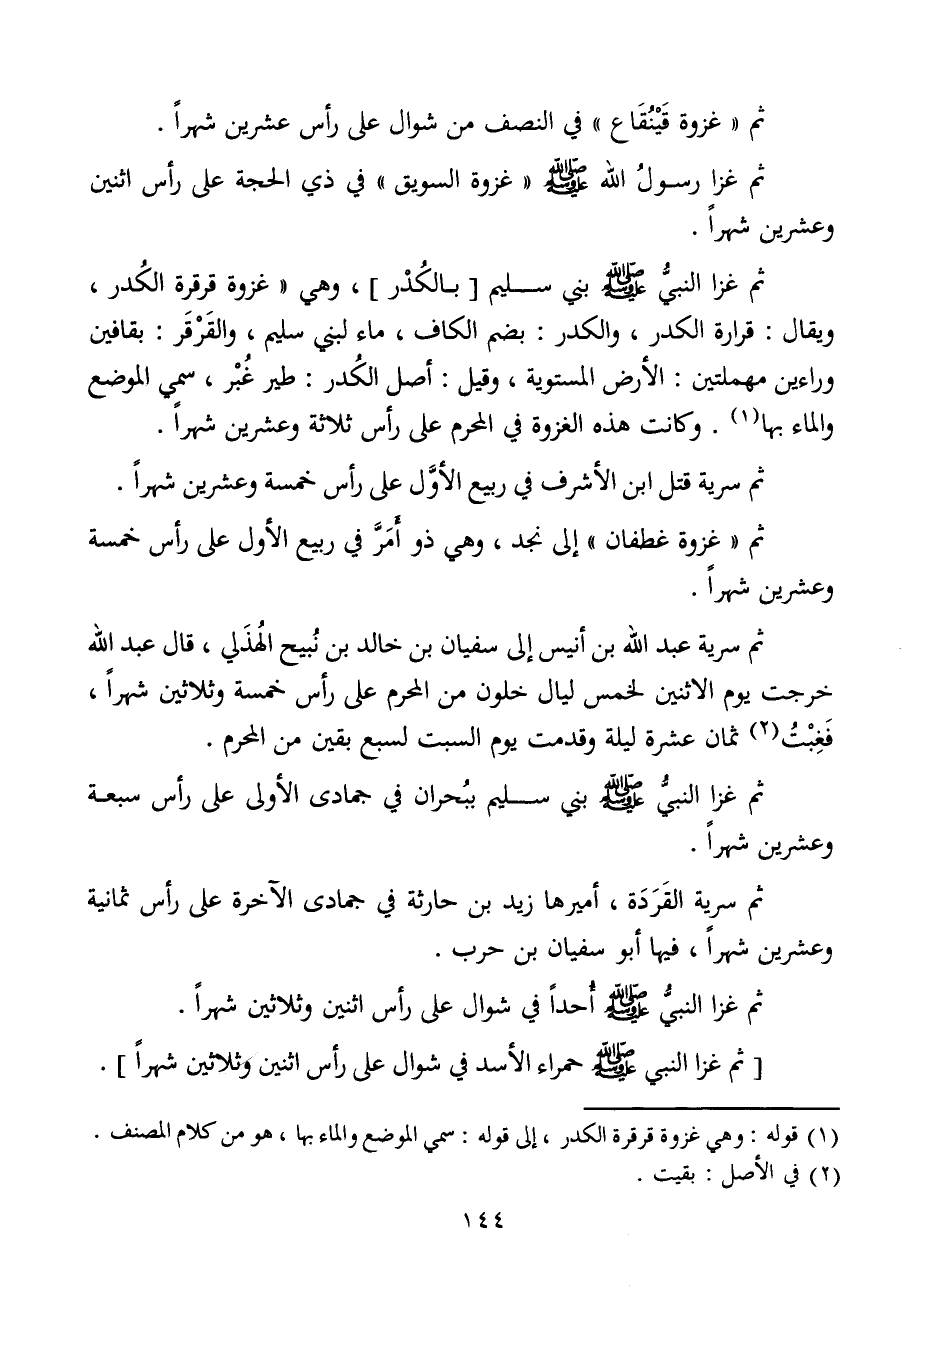 ثم « غزوة قَيْنُقَاع » في النصف من شوال على رأس عشرين شهراً .
ثم غزا رسولُ الله ﷺ « غزوة السويق » في ذي الحجة على رأس اثنين
وعشرين شهراً .
ثم غزا النبيُّ ﷺ بني سليم [ بالكُدْر ] ، وهي « غزوة قرقرة الكُدر ،
ويقال : قرارة الكدر ، والكدر : بضم الكاف ، ماء لبني سليم ، والقَرْقَر : بقافين
وراءين مهملتين : الأرض المستوية ، وقيل : أصل الكُدر : طير غُبْر ، سمي الموضع
والماء بها(١) . وكانت هذه الغزوة في المحرم على رأس ثلاثة وعشرين شهراً .
ثم سرية قتل ابن الأشرف في ربيع الأوَّل على رأس خمسة وعشرين شهراً .
ثم « غزوة غطفان » إلى نجد ، وهي ذو أَمَرَّ في ربيع الأول على رأس خمسة
وعشرين شهراً .
ثم سرية عبد الله بن أنيس إلى سفيان بن خالد بن نُبيح الهُذَلي ، قال عبد الله
خرجت يوم الاثنين لخمس ليال خلون من المحرم على رأس خمسة وثلاثين شهراً ،
فَغِبْتُ(٢) ثمان عشرة ليلة وقدمت يوم السبت لسبع بقين من المحرم .
ثم غزا النبيُّ ﷺ بني سليم ببُحران في جمادى الأولى على رأس سبعة
وعشرين شهراً .
ثم سرية القَرَدَة ، أميرها زيد بن حارثة في جمادى الآخرة على رأس ثمانية
وعشرين شهراً ، فيها أبو سفيان بن حرب .
ثم غزا النبيُّ ﷺ أُحداً في شوال على رأس اثنين وثلاثين شهراً .
[ ثم غزا النبي ﷺ حمراء الأسد في شوال على رأس اثنين وثلاثين شهراً ] .
(١) قوله : وهي غزوة قرقرة الكدر ، إلى قوله : سمي الموضع والماء بها ، هو من كلام المصنف .
(٢) في الأصل : بقيت .
١٤٤